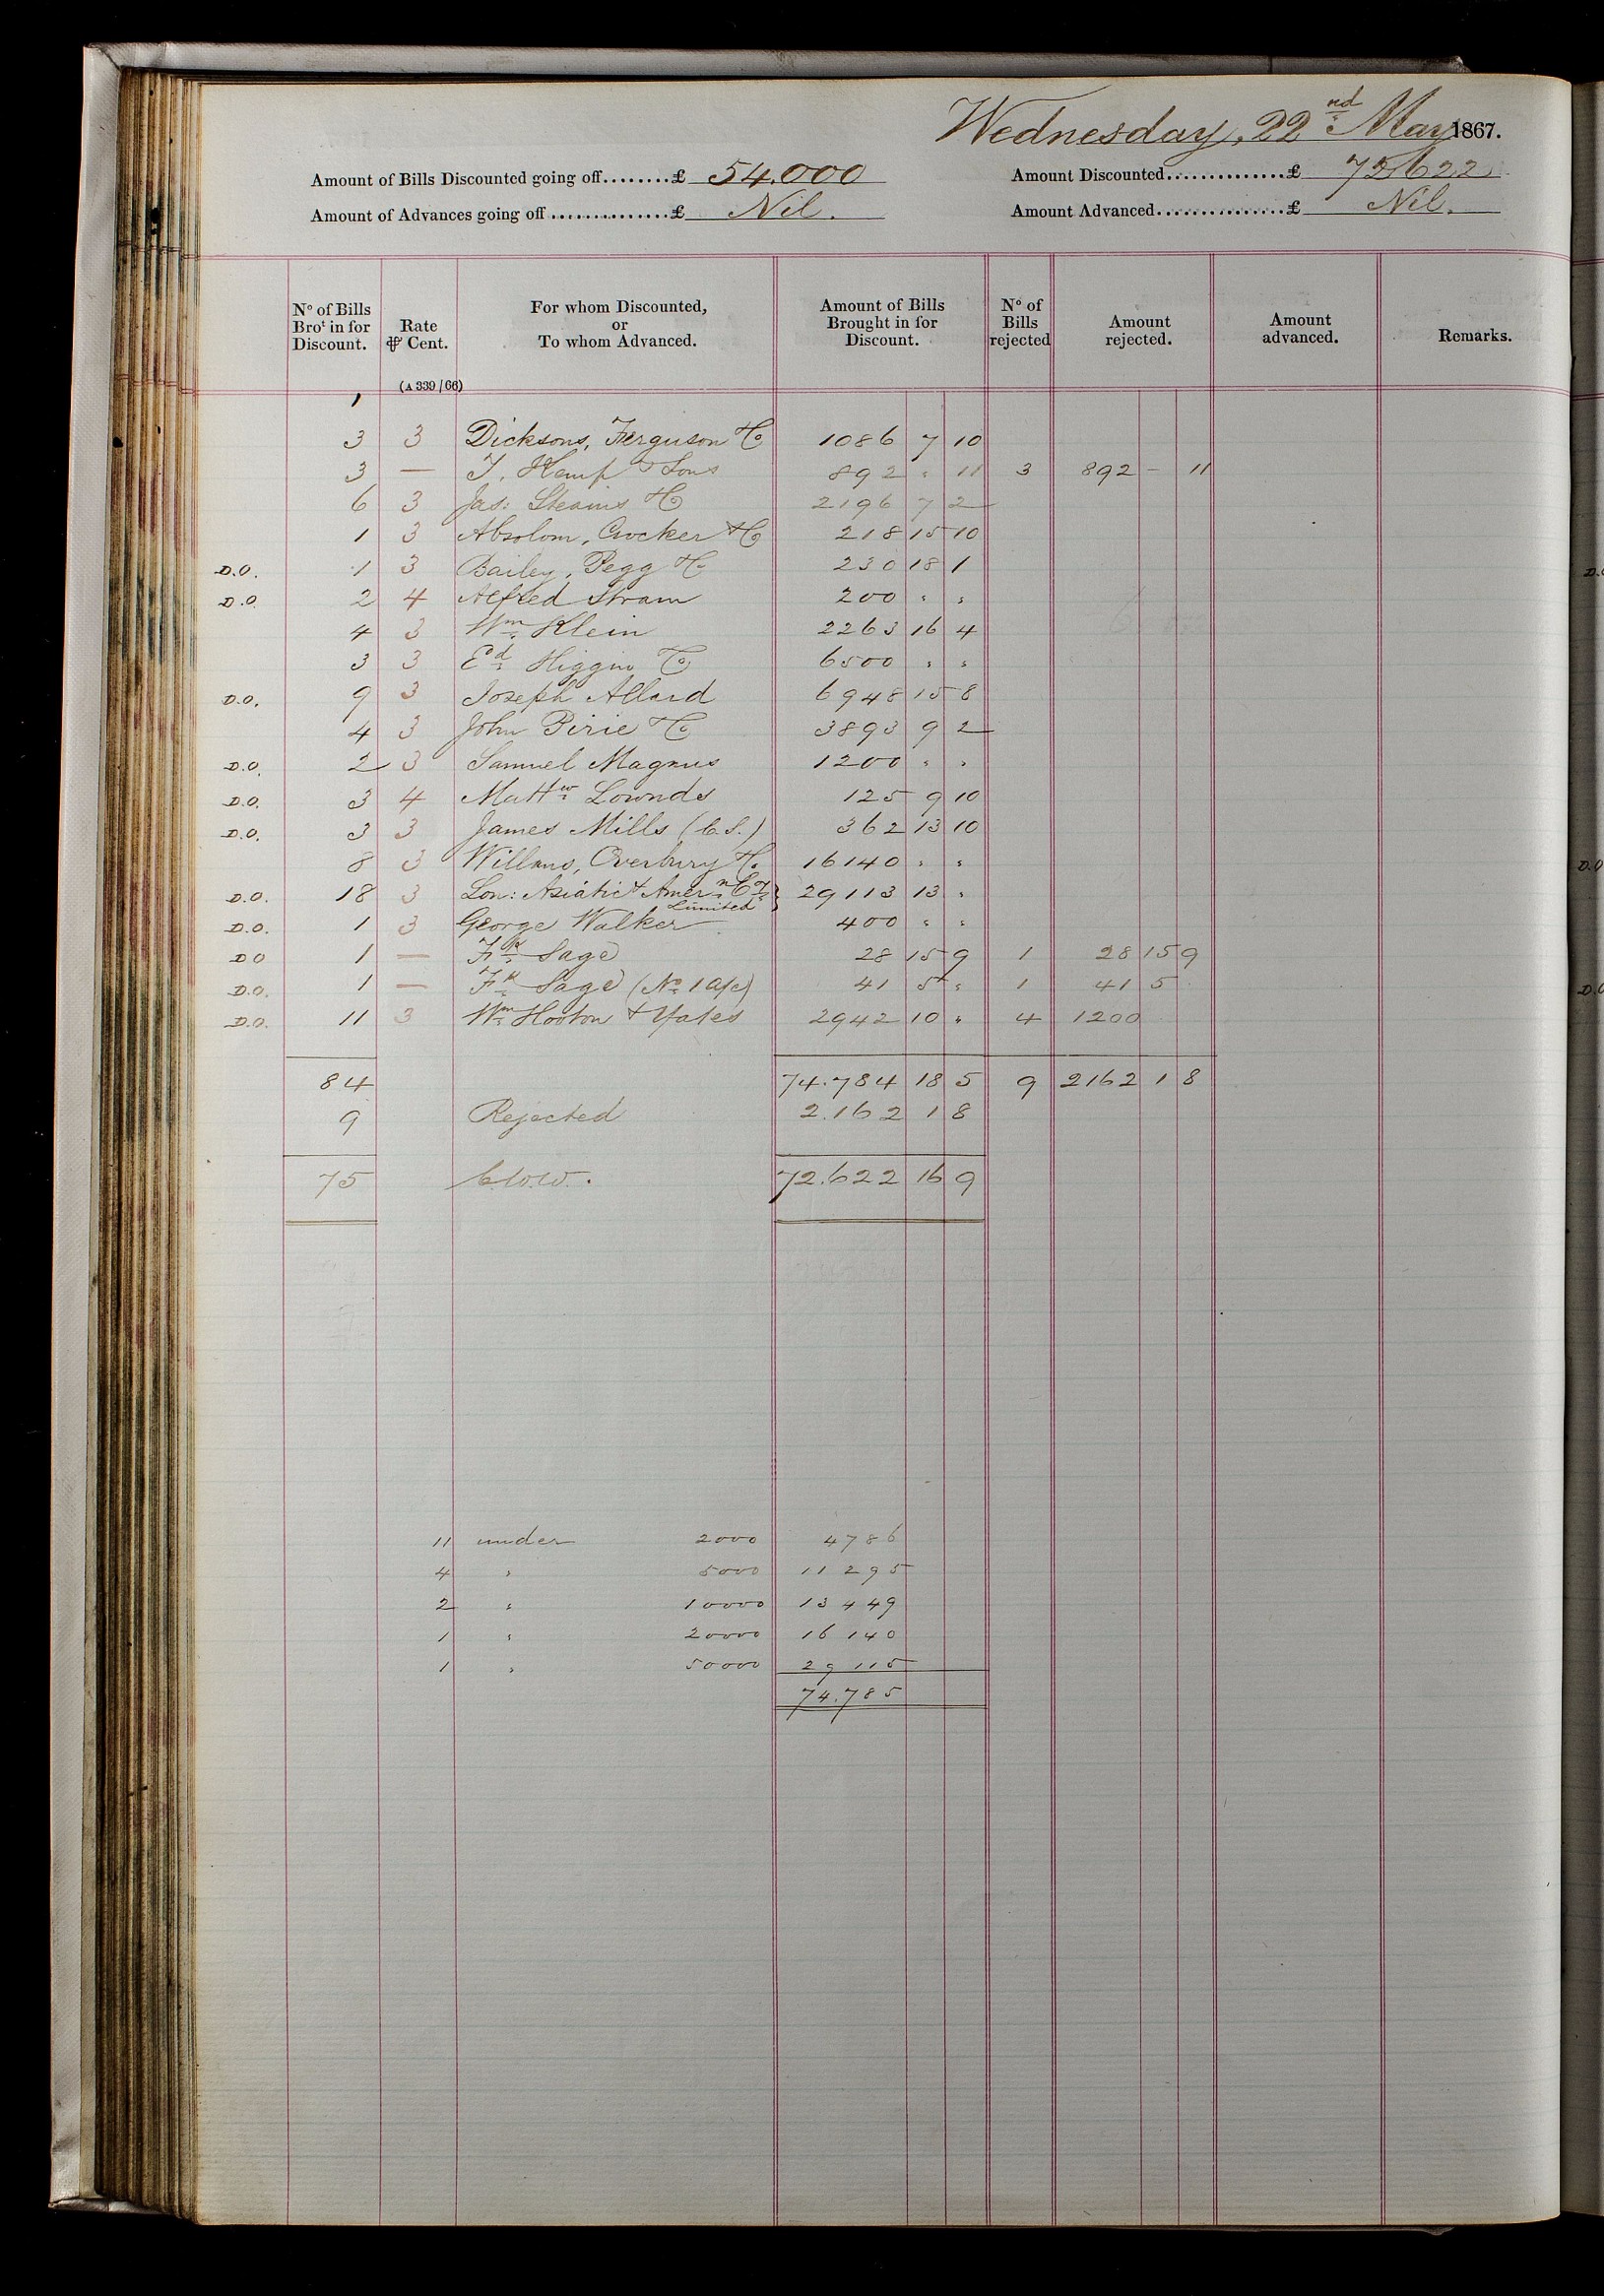 Wednesday, 22nd May 1867.
Amount of Bills Discounted going off........£ 54.000 Amount Discounted..............£ 72622
Amount of Advances going off..............£ Nil. Amount Advanced...............£ Nil.
No of Bills Brot in for Discount. Rate ⅌ Cent. For whom Discounted, or To whom Advanced. Amount of Bills Brought in for Discount. No of Bills rejected Amount rejected. Amount advanced. Remarks.
(A 339/66)
3 3 Dicksons, Ferguson & Co 1086 7 10
3 — T. Kemp & Sons 892 " 11 3 892 — 11
6 3 Jas: Stearns & Co 2196 7 2
1 3 Absolom, Crocker & Co 218 15 10
D.O. 1 3 Bailey, Pegg & Co 230 18 1
D.O. 2 4 Alfred Stram 200 " "
4 3 Wm Klein 2263 16 4
3 3 Ed Higgin & Co 6500 " "
D.O. 9 3 Joseph Allard 6948 15 8
4 3 John Pirie & Co 3893 9 2
D.O. 2 3 Samuel Magnus 1200 " "
D.O. 3 4 Mattw Lownds 125 9 10
D.O. 3 3 James Mills (C.S.) 362 13 10
8 3 Willans, Overbury & Co 16140 " "
D.O. 18 3 Lon: Asiatic & Amern Coy Limited 29113 13 "
D.O. 1 3 George Walker 400 " "
DO 1 — Fk Sage 28 15 9 1 28 15 9
D.O. 1 — Fk Sage (No 1 a/c) 41 5 " 1 41 5
D.O. 11 3 Wm Hooton & Yates 2942 10 " 4 1200
84 74.784 18 5 9 2162 1 8
9 Rejected 2.162 1 8
75 72.622 16 9
11 under 2000 4786
4 " 5000 11295
2 " 10000 13449
1 " 20000 16140
1 " 50000 29115
74.785